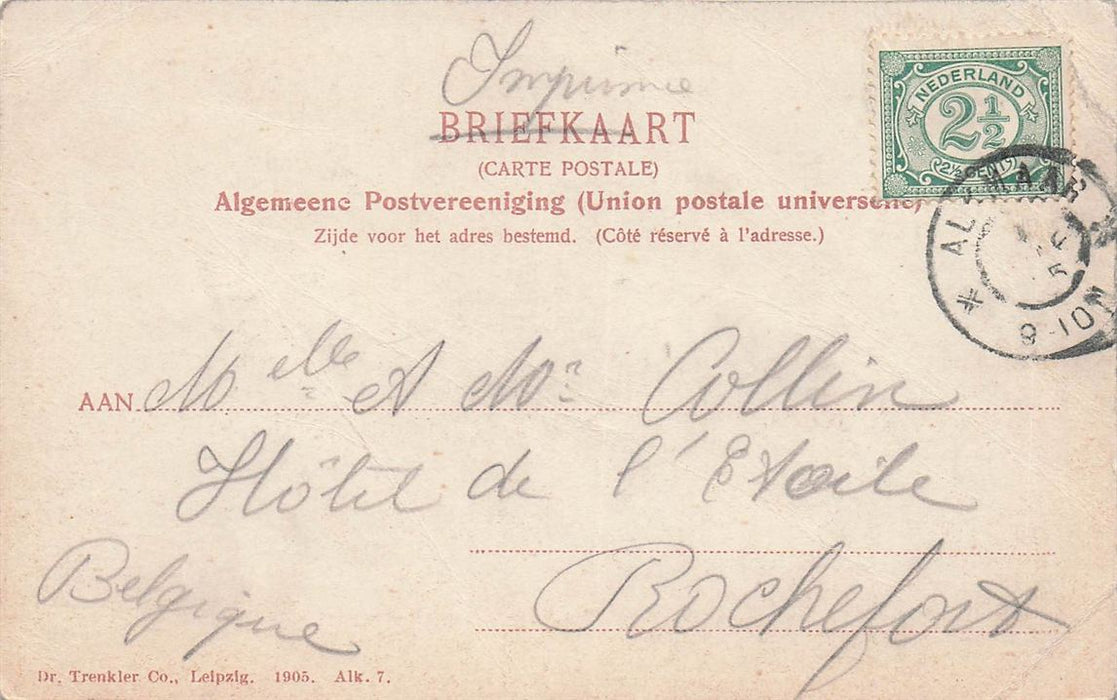 Imprimé
BRIEFKAART
(CARTE POSTALE)
Algemeene Postvereeniging (Union postale universelle)
Zijde voor het adres bestemd. (Côté réservé à l'adresse.)
NEDERLAND
2½
2½ CENT
ALKMAAR
8-10N
AAN Melle A Mr Collin
Hôtel de l'Etoile
Rochefort
Belgique
Dr. Trenkler Co., Leipzig. 1905. Alk. 7.